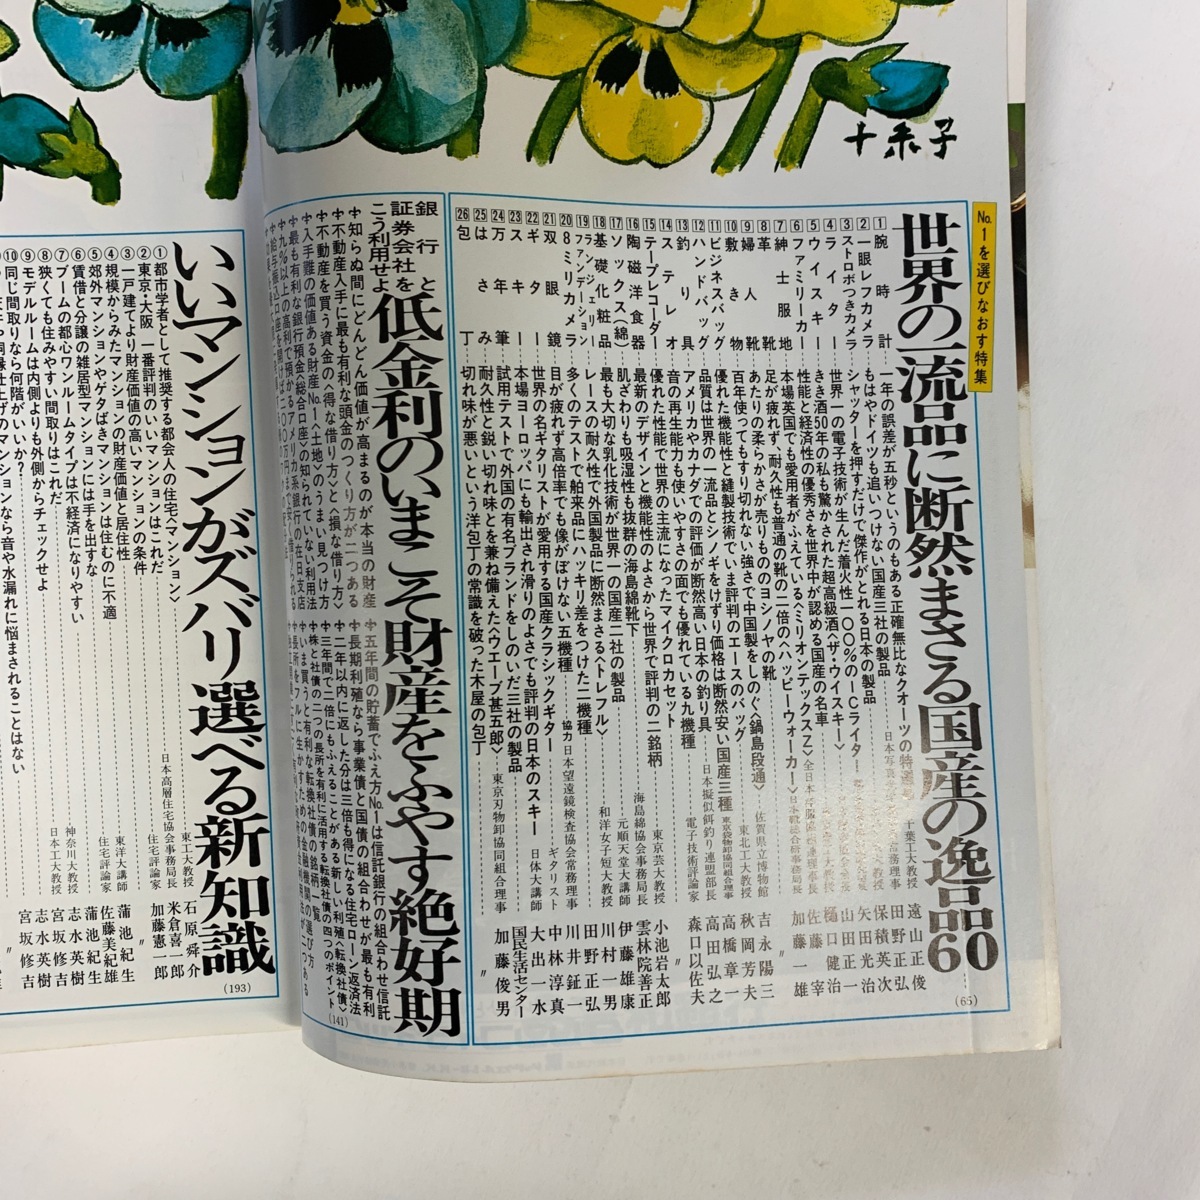 十糸子
No.1を選びなおす特集
世界の一流品に断然まさる国産の逸品60
1 腕時計 一年の誤差が五秒というのもある正確無比なクオーツの特選
2 一眼レフカメラ もはやドイツも追いつけない国産三社の製品
3 ストロボつきカメラ シャッターを押すだけで傑作がとれる日本の製品
4 ライター 世界一の電子技術が生んだ着火性一〇〇%のICライター
5 ウイスキー きき酒50年の私も驚かされた超高級酒〈ザ・ウイスキー〉
6 ファミリーカー 性能と経済性の優秀さを世界中が認める国産の名車
7 紳士服地 本場英国でも愛用者がふえている〈ミリオンテックスZ〉
8 革靴 足が疲れず、耐久性も普通の靴の二倍の〈ハッピーウォーカー〉
9 婦人靴 あたりの柔らかさが売りもののヨシノヤの靴
10 敷き物 百年使ってもすり切れない強さで中国製をしのぐ〈鍋島段通〉
11 ビジネスバッグ 優れた機能性と縫製技術でいま評判のエースのバッグ
12 ハンドバッグ 品質は世界の一流品とシノギをけずり価格は断然安い国産三種
13 釣り具 アメリカやカナダでの評価が断然高い日本の釣り具
14 ステレオ 音の再生能力も使いやすさの面でも優れている九機種
15 テープレコーダー 優れた性能で世界の主流になったマイクロカセット
16 陶磁洋食器 最新のデザインと機能性のよさから世界で評判の二銘柄
17 ソックス(綿) 肌ざわりも吸湿性も抜群の海島綿靴下
18 基礎化粧品 最も大切な乳化技術が世界一の国産二社の製品
19 ファンデーション ランジェリー レースの耐久性で外国製品に断然まさる〈トレフル〉
20 8ミリカメラ 多くのテストで舶来品にハッキリ差をつけた二機種
21 双眼鏡 目が疲れず高倍率でも像がぼけない五機種
22 ギター 世界の名ギタリストが愛用する国産クラシックギター
23 スキー 本場ヨーロッパにも輸出され滑りのよさでも評判の日本のスキー
24 万年筆 試用テストで外国の有名ブランドをしのいだ三社の製品
25 はさみ 耐久性と鋭い切れ味とを兼ね備えた〈ウエーブ甚五郎〉
26 包丁 切れ味が悪いという洋包丁の常識を破った木屋の包丁
千葉工大教授 遠山正俊
田野正弘
保積英次
矢田光治
山田正一
樋口健治
佐藤宰
加藤一雄
吉永陽三
東北工大教授 秋岡芳夫
高橋章一
高田弘之
電子技術評論家 森口以佐夫
東京芸大教授 小池岩太郎
海島綿協会事務局長 雲林院善正
元順天堂大講師 伊藤雄康
和洋女子短大教授 川村一男
田野正弘
協力日本望遠鏡検査協会常務理事 川井鉦一
ギタリスト 中林淳真
日体大講師 大出一水
国民生活センター
東京刃物卸協同組合理事 加藤俊男
〃
佐賀県立博物館
東京袋物卸協同組合理事
日本擬似餌釣り連盟部長
(65)
銀行と証券会社をこう利用せよ
低金利のいまこそ財産をふやす絶好期
知らぬ間にどんどん価値が高まるのが本当の財産
不動産入手に最も有利な頭金のつくり方が二つある
不動産を買う資金の〈得な借り方〉と〈損な借り方〉
入手難の価値ある財産No.1〈土地〉のうまい見つけ方
最も有利な銀行預金〈総合口座〉の知られていない利用法
九%以上の高利で預かるアメリカ系銀行の在日支店
五年間の貯蓄でふえ方No.1は信託銀行の組合わせ信託
長期利殖なら事業債と国債の組合わせが最も有利
二年以内に返した分は三倍も得になる住宅ローン返済法
三年間で二倍にもふえることがある新しい利殖〈転換社債〉
株と社債の二つの長所を有利に活用する転換社債の四つのポイント
いま買うと有利な転換社債の銘柄一覧
長所をフルに生かすための金融機関の選び方
(141)
いいマンションがズバリ選べる新知識
① 都市学者として推奨する都会人の住宅〈マンション〉 東工大教授 石原舜介
② 東京・大阪 一番評判のいいマンションはこれだ 日本高層住宅協会事務局長 米倉喜一郎
③ 一戸建てより財産価値の高いマンションの条件 住宅評論家 加藤憲一郎
④ 規模からみたマンションの財産価値と居住性 〃
⑤ 郊外マンションやゲタばきマンションは住むのに不適 東洋大講師 蒲池紀生
⑥ 賃借と分譲の雑居型マンションには手を出すな 住宅評論家 佐藤美紀雄
⑦ ブームの都心ワンルームタイプは不経済になりやすい 蒲池紀生
⑧ 狭くても住みやすい間取りはこれだ 神奈川大教授 志水英樹
⑨ モデルルームは内側よりも外側からチェックせよ 日本工大教授 宮坂修吉
⑩ 同じ間取りなら何階がいいか? 志水英樹
宮坂修吉
マンションなら音や水漏れに悩まされることはない 〃
(193)